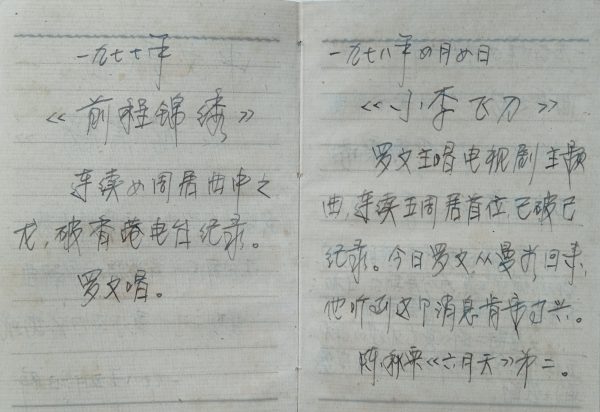 一九七七年
《前程锦绣》
连续四周居曲中之
龙，破香港电台纪录。
罗文唱。
一九七八年四月四日
《小李飞刀》
罗文主唱电视剧主题
曲，连续五周居首位，已破已
纪录。今日罗文从曼谷回来，
他听到这个消息肯定高兴。
陈秋霞《六月天》第二。